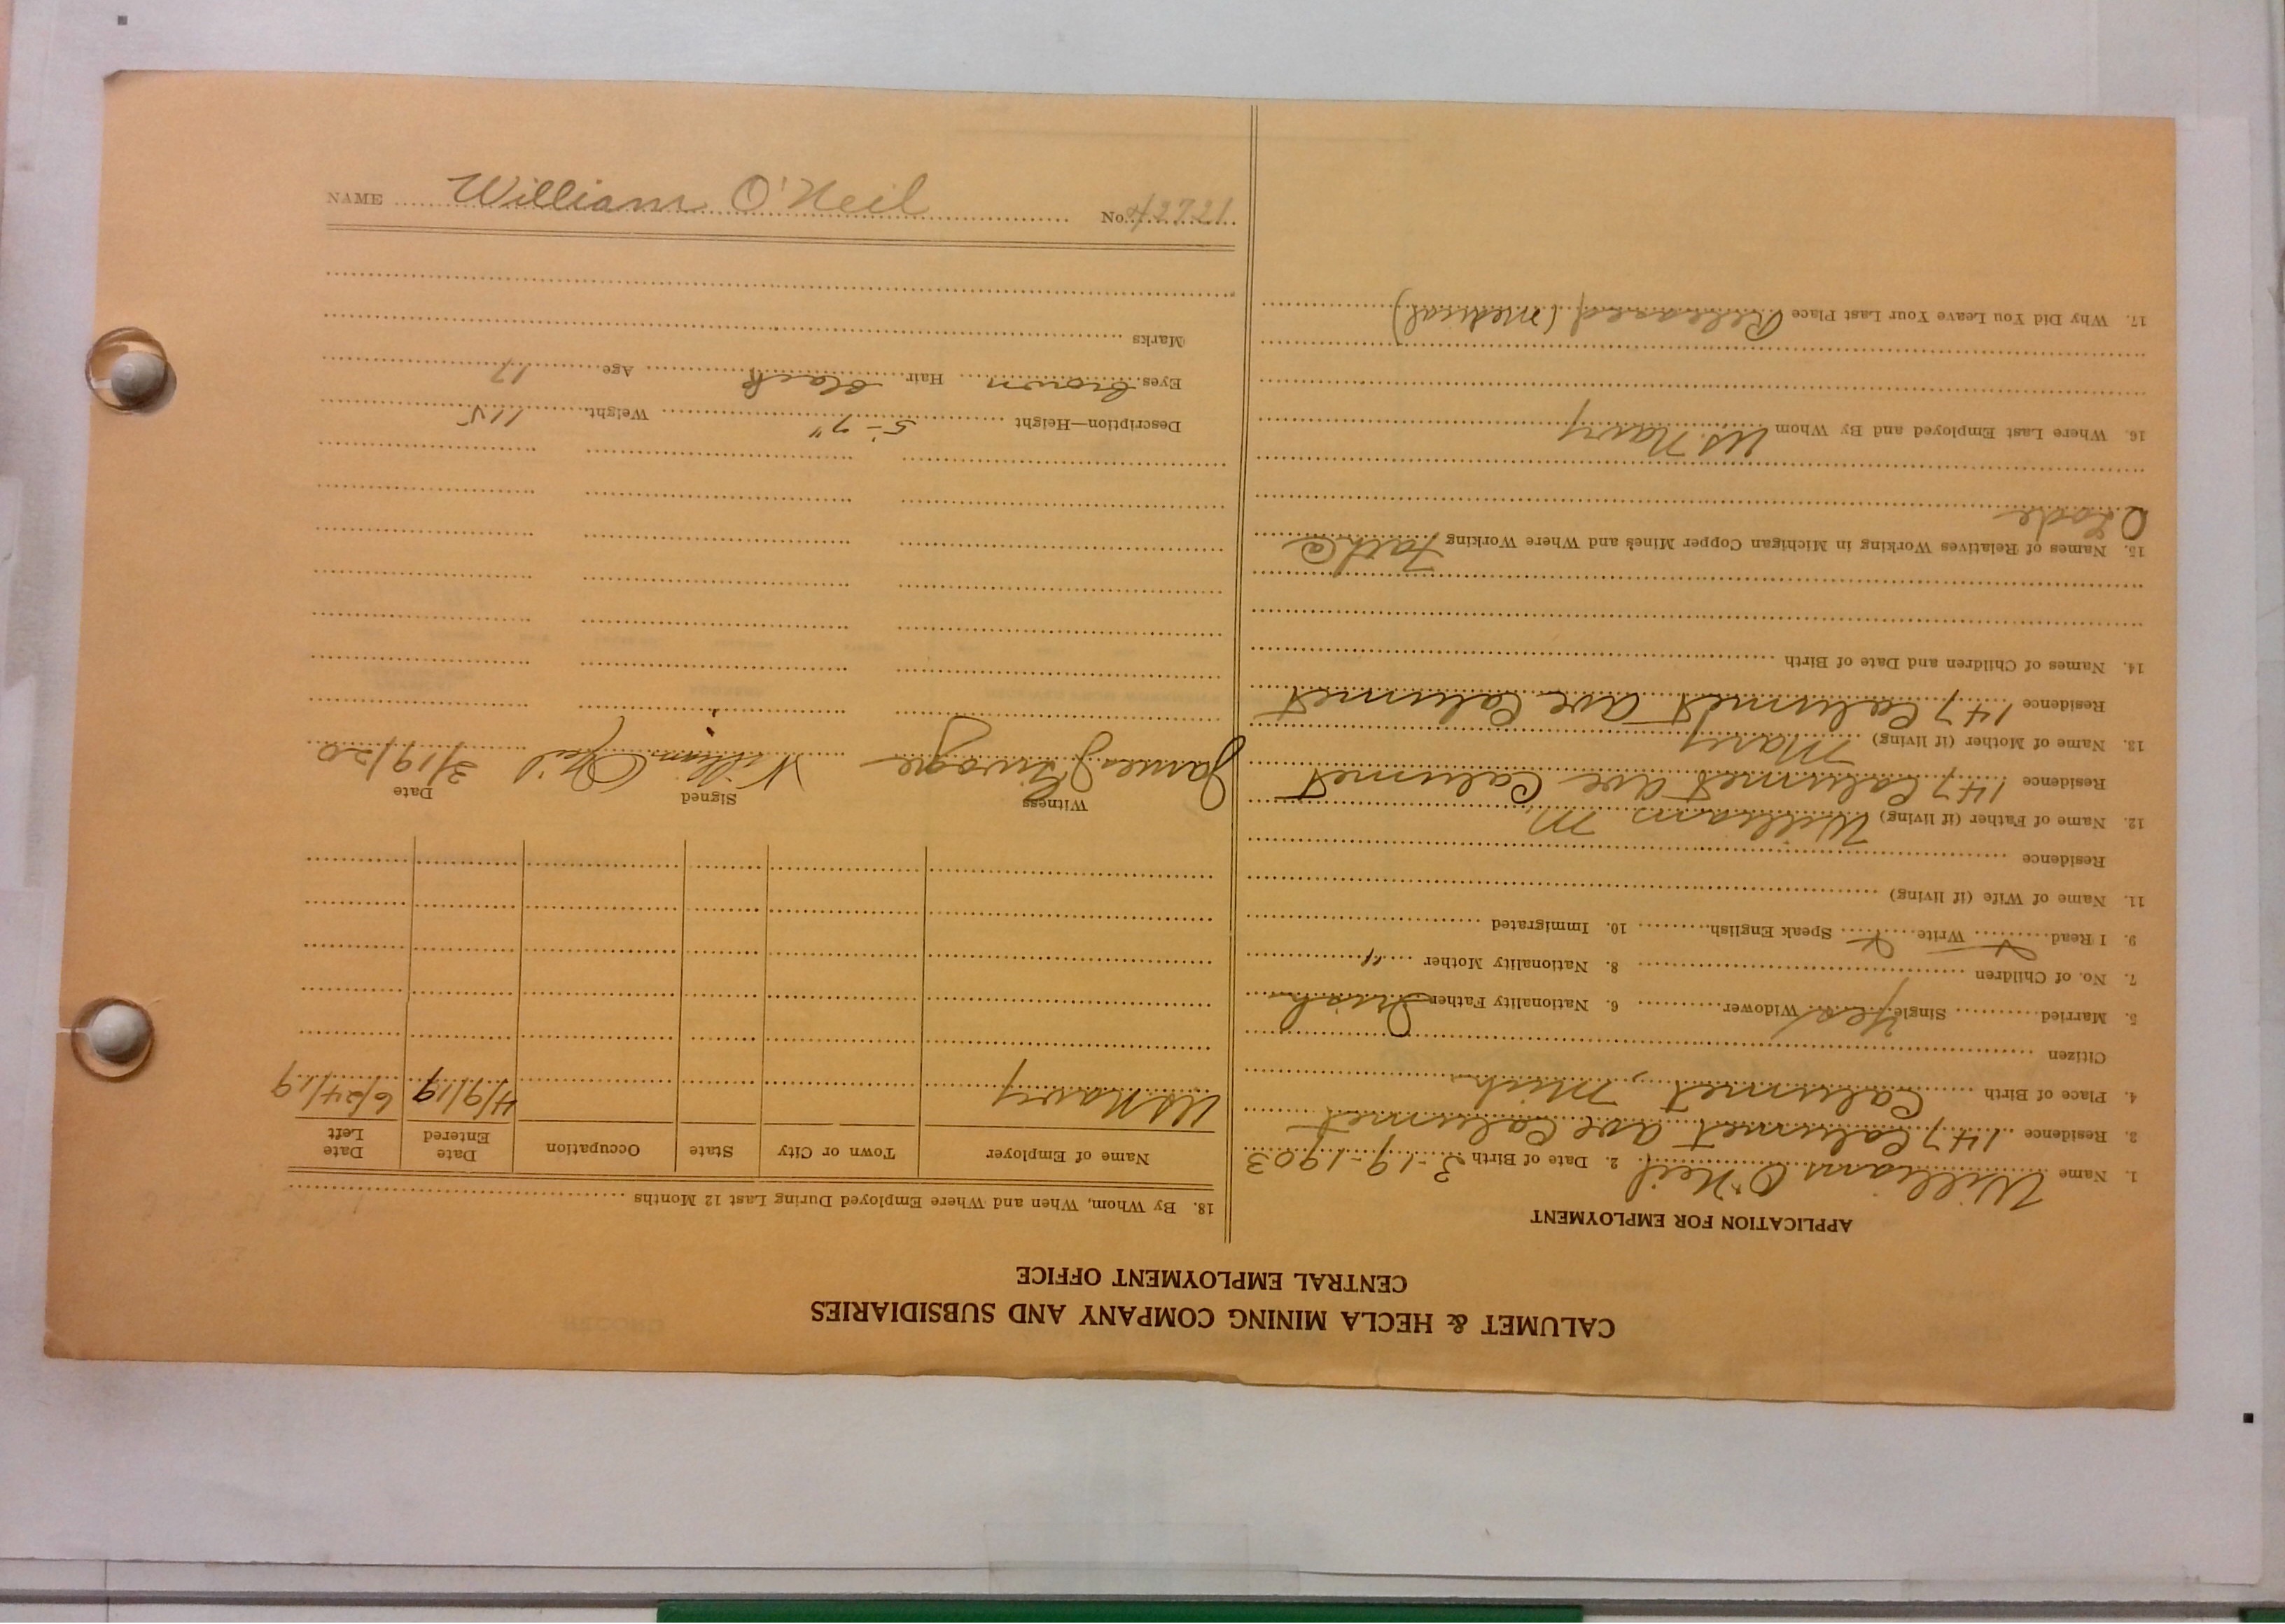 CALUMET & HECLA MINING COMPANY AND SUBSIDIARIES
CENTRAL EMPLOYMENT OFFICE
APPLICATION FOR EMPLOYMENT
1. Name William O'Neil 2. Date of Birth 3-19-1903
3. Residence 147 Calumet ave Calumet
4. Place of Birth Calumet, Mich
Citizen
5. Married Single Yes Widower 6. Nationality Father Irish
7. No. of Children 8. Nationality Mother "
9. I Read Write Speak English 10. Immigrated
11. Name of Wife (if living)
Residence
12. Name of Father (if living) William M.
Residence 147 Calumet ave Calumet
13. Name of Mother (if living) Mary
Residence 147 Calumet ave Calumet
14. Names of Children and Date of Birth
15. Names of Relatives Working in Michigan Copper Mines and Where Working Father
Lode
16. Where Last Employed and By Whom U.S. Navy
17. Why Did You Leave Your Last Place Released (Medical)
18. By Whom, When and Where Employed During Last 12 Months
Name of Employer Town or City State Occupation Date Entered Date Left
US Navy 4/9/19 6/24/19
Witness Signed Date
James William O'Neil 3/19/20
Description—Height 5-7" Weight 115
Eyes brown Hair black Age 17
Marks
NAME William O'Neil No. 42721
RECORD